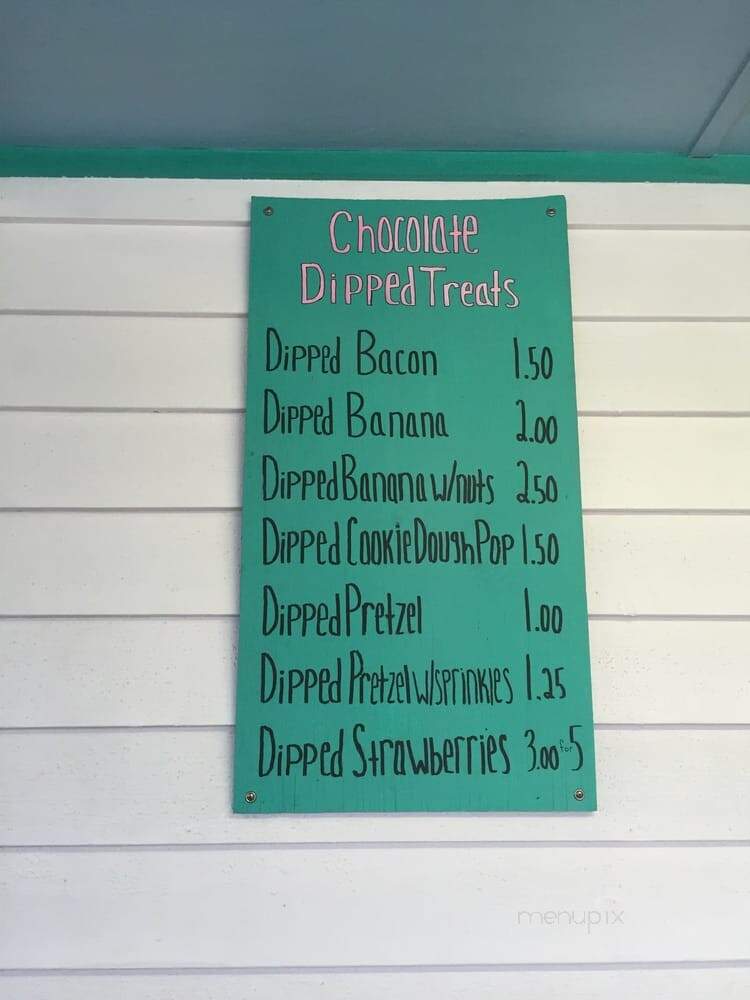 Chocolate
Dipped Treats
Dipped Bacon 1.50
Dipped Banana 2.00
Dipped Banana w/nuts 2.50
Dipped Cookie Dough Pop 1.50
Dipped Pretzel 1.00
Dipped Pretzel w/sprinkles 1.25
Dipped Strawberries 3.00 for 5
menupix